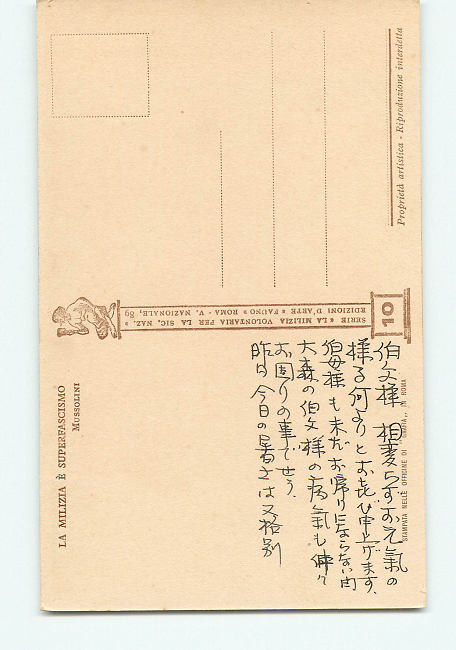 Proprietà artistica - Riproduzione interdetta
10
SERIE « LA MILIZIA VOLONTARIA PER LA SIC. NAZ. »
EDIZIONI D'ARTE « FAUNO » ROMA - V. NAZIONALE, 89
LA MILIZIA È SUPERFASCISMO
MUSSOLINI
STAMPATA NELLE OFFICINE DI
IN ROMA
伯父様 相変らずお元氣の
様子何よりとお喜び申上げます、
伯母様も未だお帰りにならない由
大森の伯父様の病氣も仲々
お困りの事でせう。
昨日今日の暑さは又格別